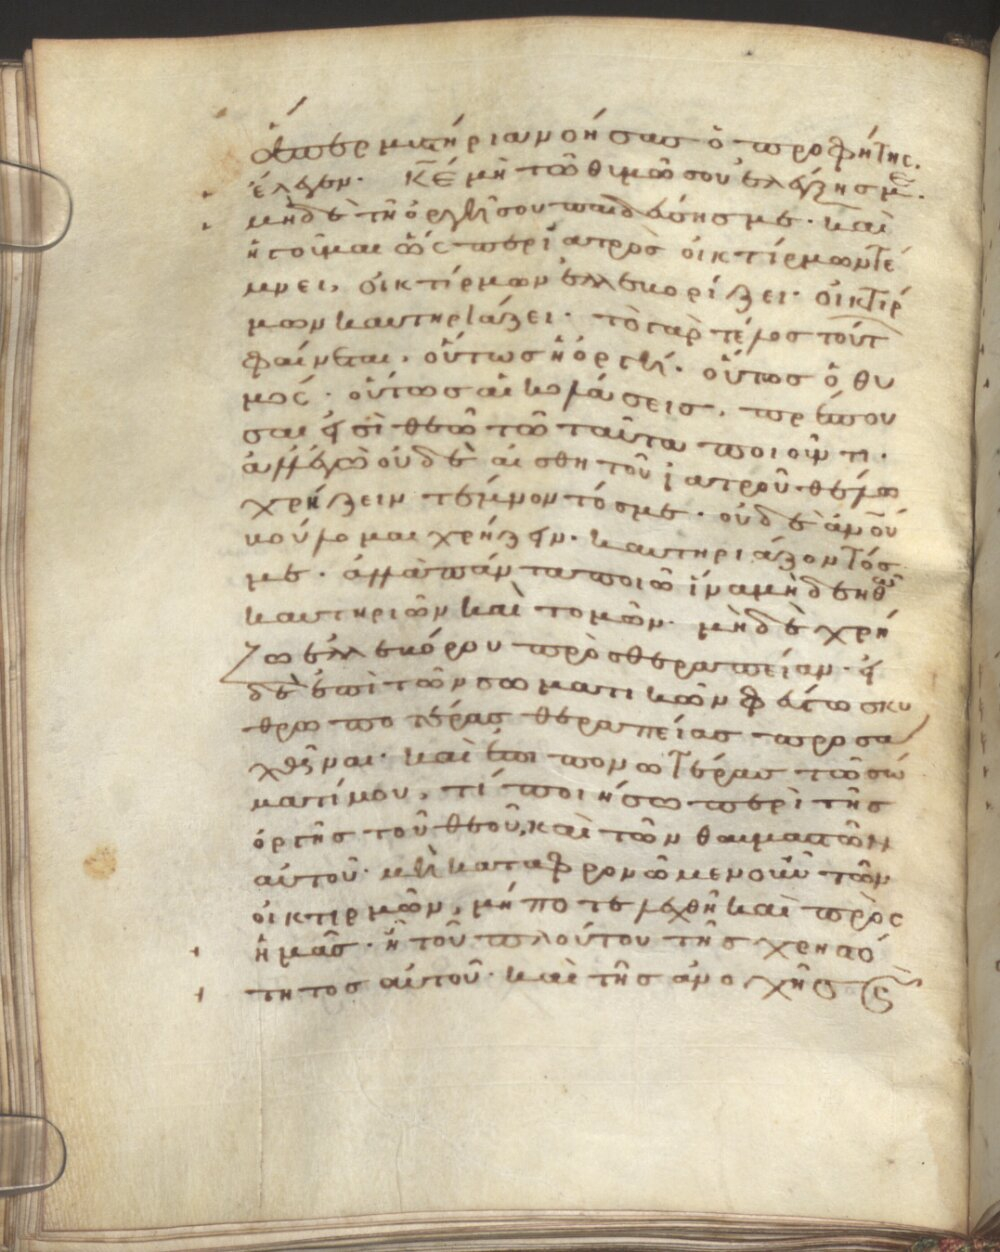 ἅπερ μυστήρια νοήσας ὁ προφήτης.
ἔλεγεν· κ̅ε̅ μὴ τῶ θυμῶ σου ἐλέγξης με·
μηδὲ τῆ ὀργῆ σου παιδεύσης με· καὶ
ἡτοῖμαι ὥς περ ἰατρὸς οἰκτίρμων τέ
μνει, οἰκτίρμων ἑλλεβορίζει· οἰκτίρ
μων καυτηριάζει· τὸ γὰρ τέλος τοῦτ
φαίνεται. οὕτως ἡ ὀργή· οὕτως ὁ θυ
μός· οὕτως αἱ κολάσεις. πρέπου
σαι εἰσὶ θεῶ τῶ ταῦτα ποιοῦντι·
ἀλλεγὼ οὐδὲ αἰσθητοῦ ἰατροῦ θέλω
χρήζειν τέμνοντός με· οὐδὲ ἀν οὐ
βούλομαι χρήζειν· καυτηριάζοντός
με· ἀλλὰ πάντα ποιῶ ἵνα μὴ δεηθῶ
καυτηριῶν καὶ τομῶν· μὴδὲ χρή
ζω ἑλλεβόρου πρὸς θεραπείαν· εἰ
δὲ ἐπὶ τῶν σωματικῶν φεύγω σκυ
θρωποτέρας θεραπείας προσα
χθῆναι· καὶ ἐπιπονωτέρας τῶ σώ
ματί μου, τί ποιήσω περὶ τῆς
ὀργῆς τοῦ θεοῦ, καὶ τῶν θαυμάτων
αὐτοῦ· μὴ καταφρονῶμεν οὖν τῶν
οἰκτιρμῶν, μήποτε λεχθῆ καὶ πρὸς
ἡμᾶς· ἢ τοῦ πλούτου τῆς χρηστό
τητος αὐτοῦ· καὶ τῆς ἀνοχῆς καὶ